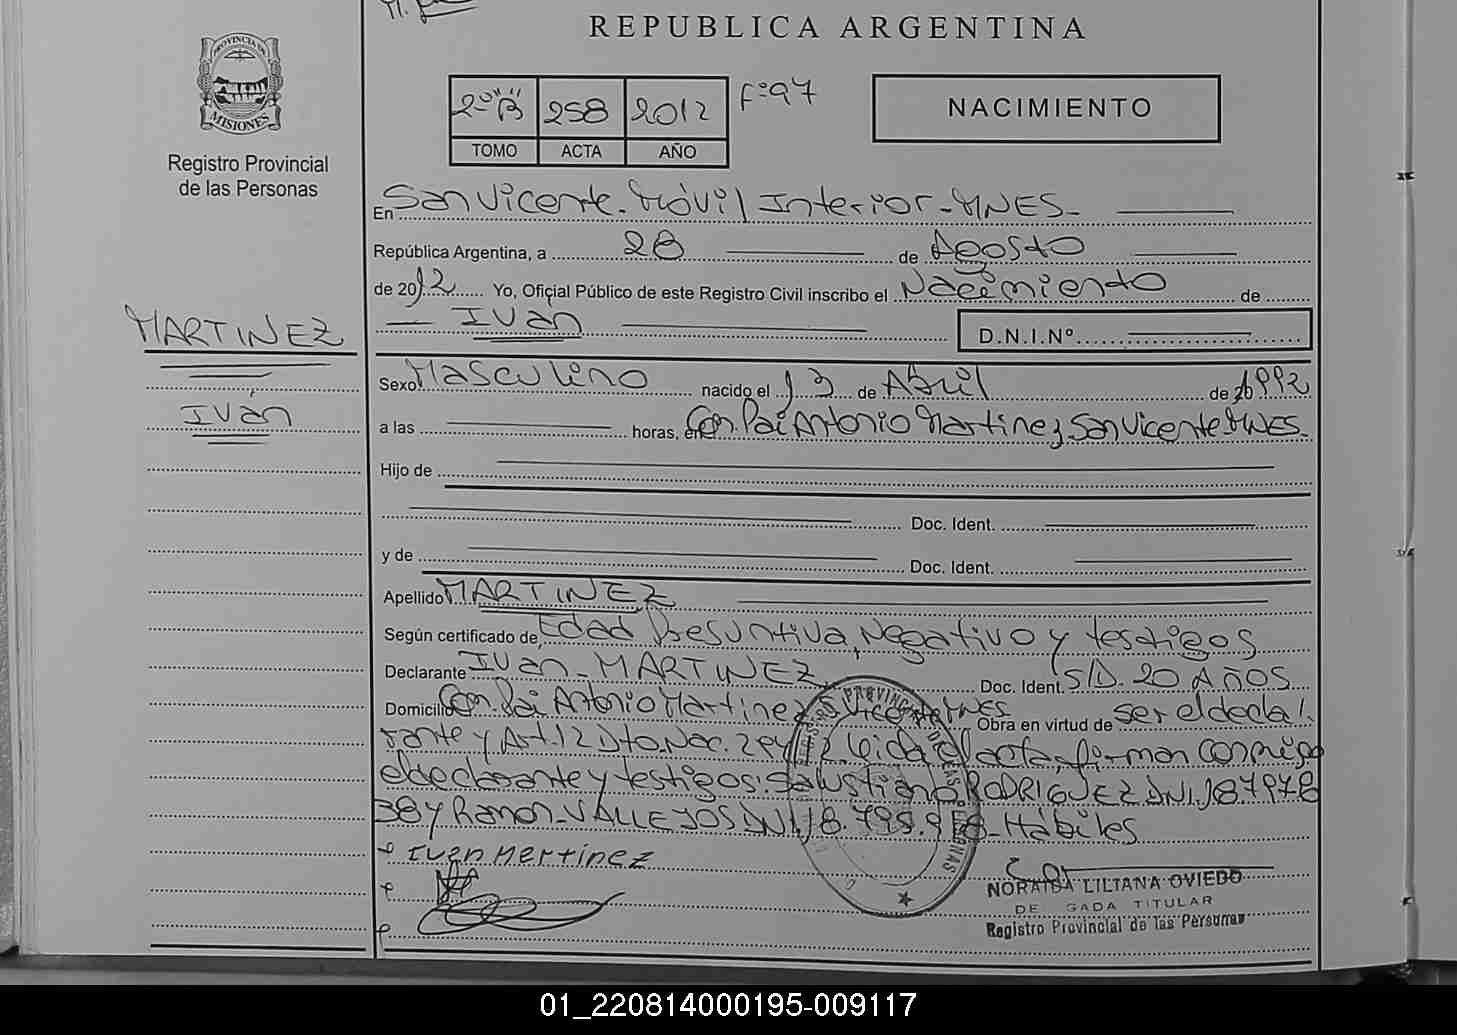 REPUBLICA ARGENTINA
PROVINCIA DE
MISIONES
Registro Provincial
de las Personas
2º "B" 258 2012 Fº 97
TOMO ACTA AÑO
NACIMIENTO
En San Vicente. Móvil Interior - MNES -
República Argentina, a 28 de Agosto
de 2012 Yo, Oficial Público de este Registro Civil inscribo el Nacimiento de
Iván
D.N.I.Nº
MARTINEZ
Iván
Sexo Masculino nacido el 13 de Abril de 1992
a las horas, en Com. Pai Antonio Martinez San Vicente MNES.
Hijo de
Doc. Ident.
y de Doc. Ident.
Apellido MARTINEZ
Según certificado de Edad Presuntiva, Negativo y testigos
Declarante Iván - MARTINEZ Doc. Ident. S/D. 20 AÑOS
Domicilio Com. Pai Antonio Martinez S. Vicente MNES Obra en virtud de ser el decla
rante y Art. 12 Dto. Nac. Leida el acta, firman conmigo
el declarante y testigos: Salustiano RODRIGUEZ DNI. 18.797.8
38 y Ramon - VALLEJOS DNI. 18.795.9 - Hábiles
Ivan Martinez
NORAIDA LILIANA OVIEDO
DE GADA TITULAR
Registro Provincial de las Personas
01_220814000195-009117